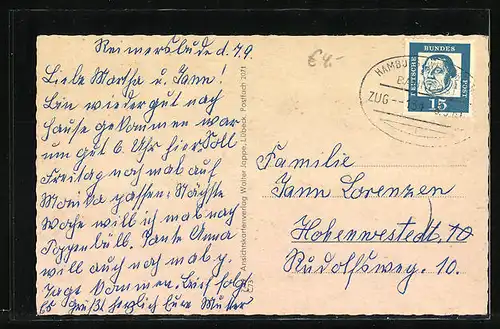 Reimersbude d. 7.9.
Liebe Martha u. Jann!
Bin wieder gut nach
Hause gekommen war
um gut 6 Uhr hier. Soll
Freitag noch mal auf
passen. Nächste
Woche will ich mal nach
Poppenbüll. Tante Anna
will auch noch mal p.
Tage kommen. Brief folgt
Es grüßt herzlich Eure Mutter
€4.-
Ansichtskartenverlag Walter Jappe, Lübeck, Postfach 2071
DEUTSCHE
BUNDES
POST
15
HAMBU
ZUG
Familie
Jann Lorenzen
Hohenwestedt
Rudolfsweg. 10.